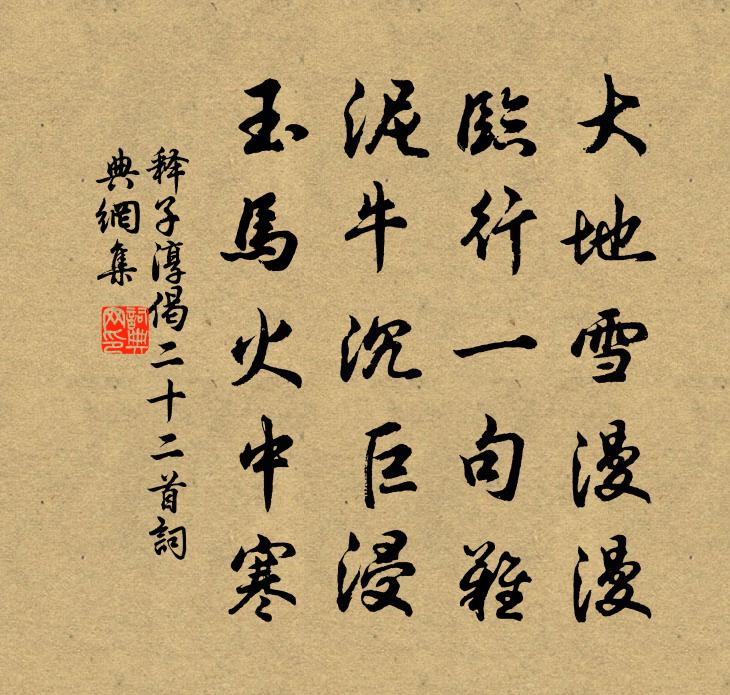 大地雪漫漫
臨行一句難
泥牛沉巨浸
玉馬火中寒
释子淳偈二十二首詞
典網集
詞典
网印